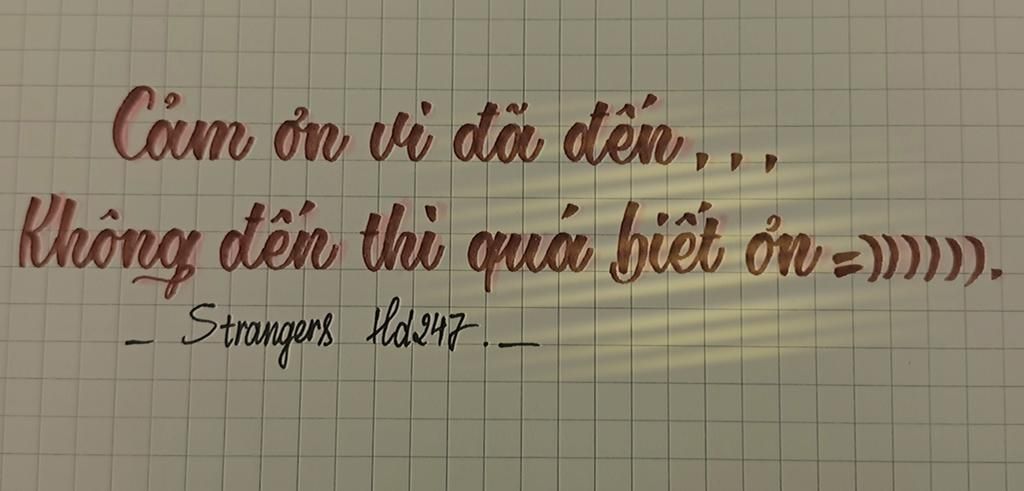 Cảm ơn vì đã đến...
Không đến thì quá biết ơn =)))))).
- Strangers Hd247. -